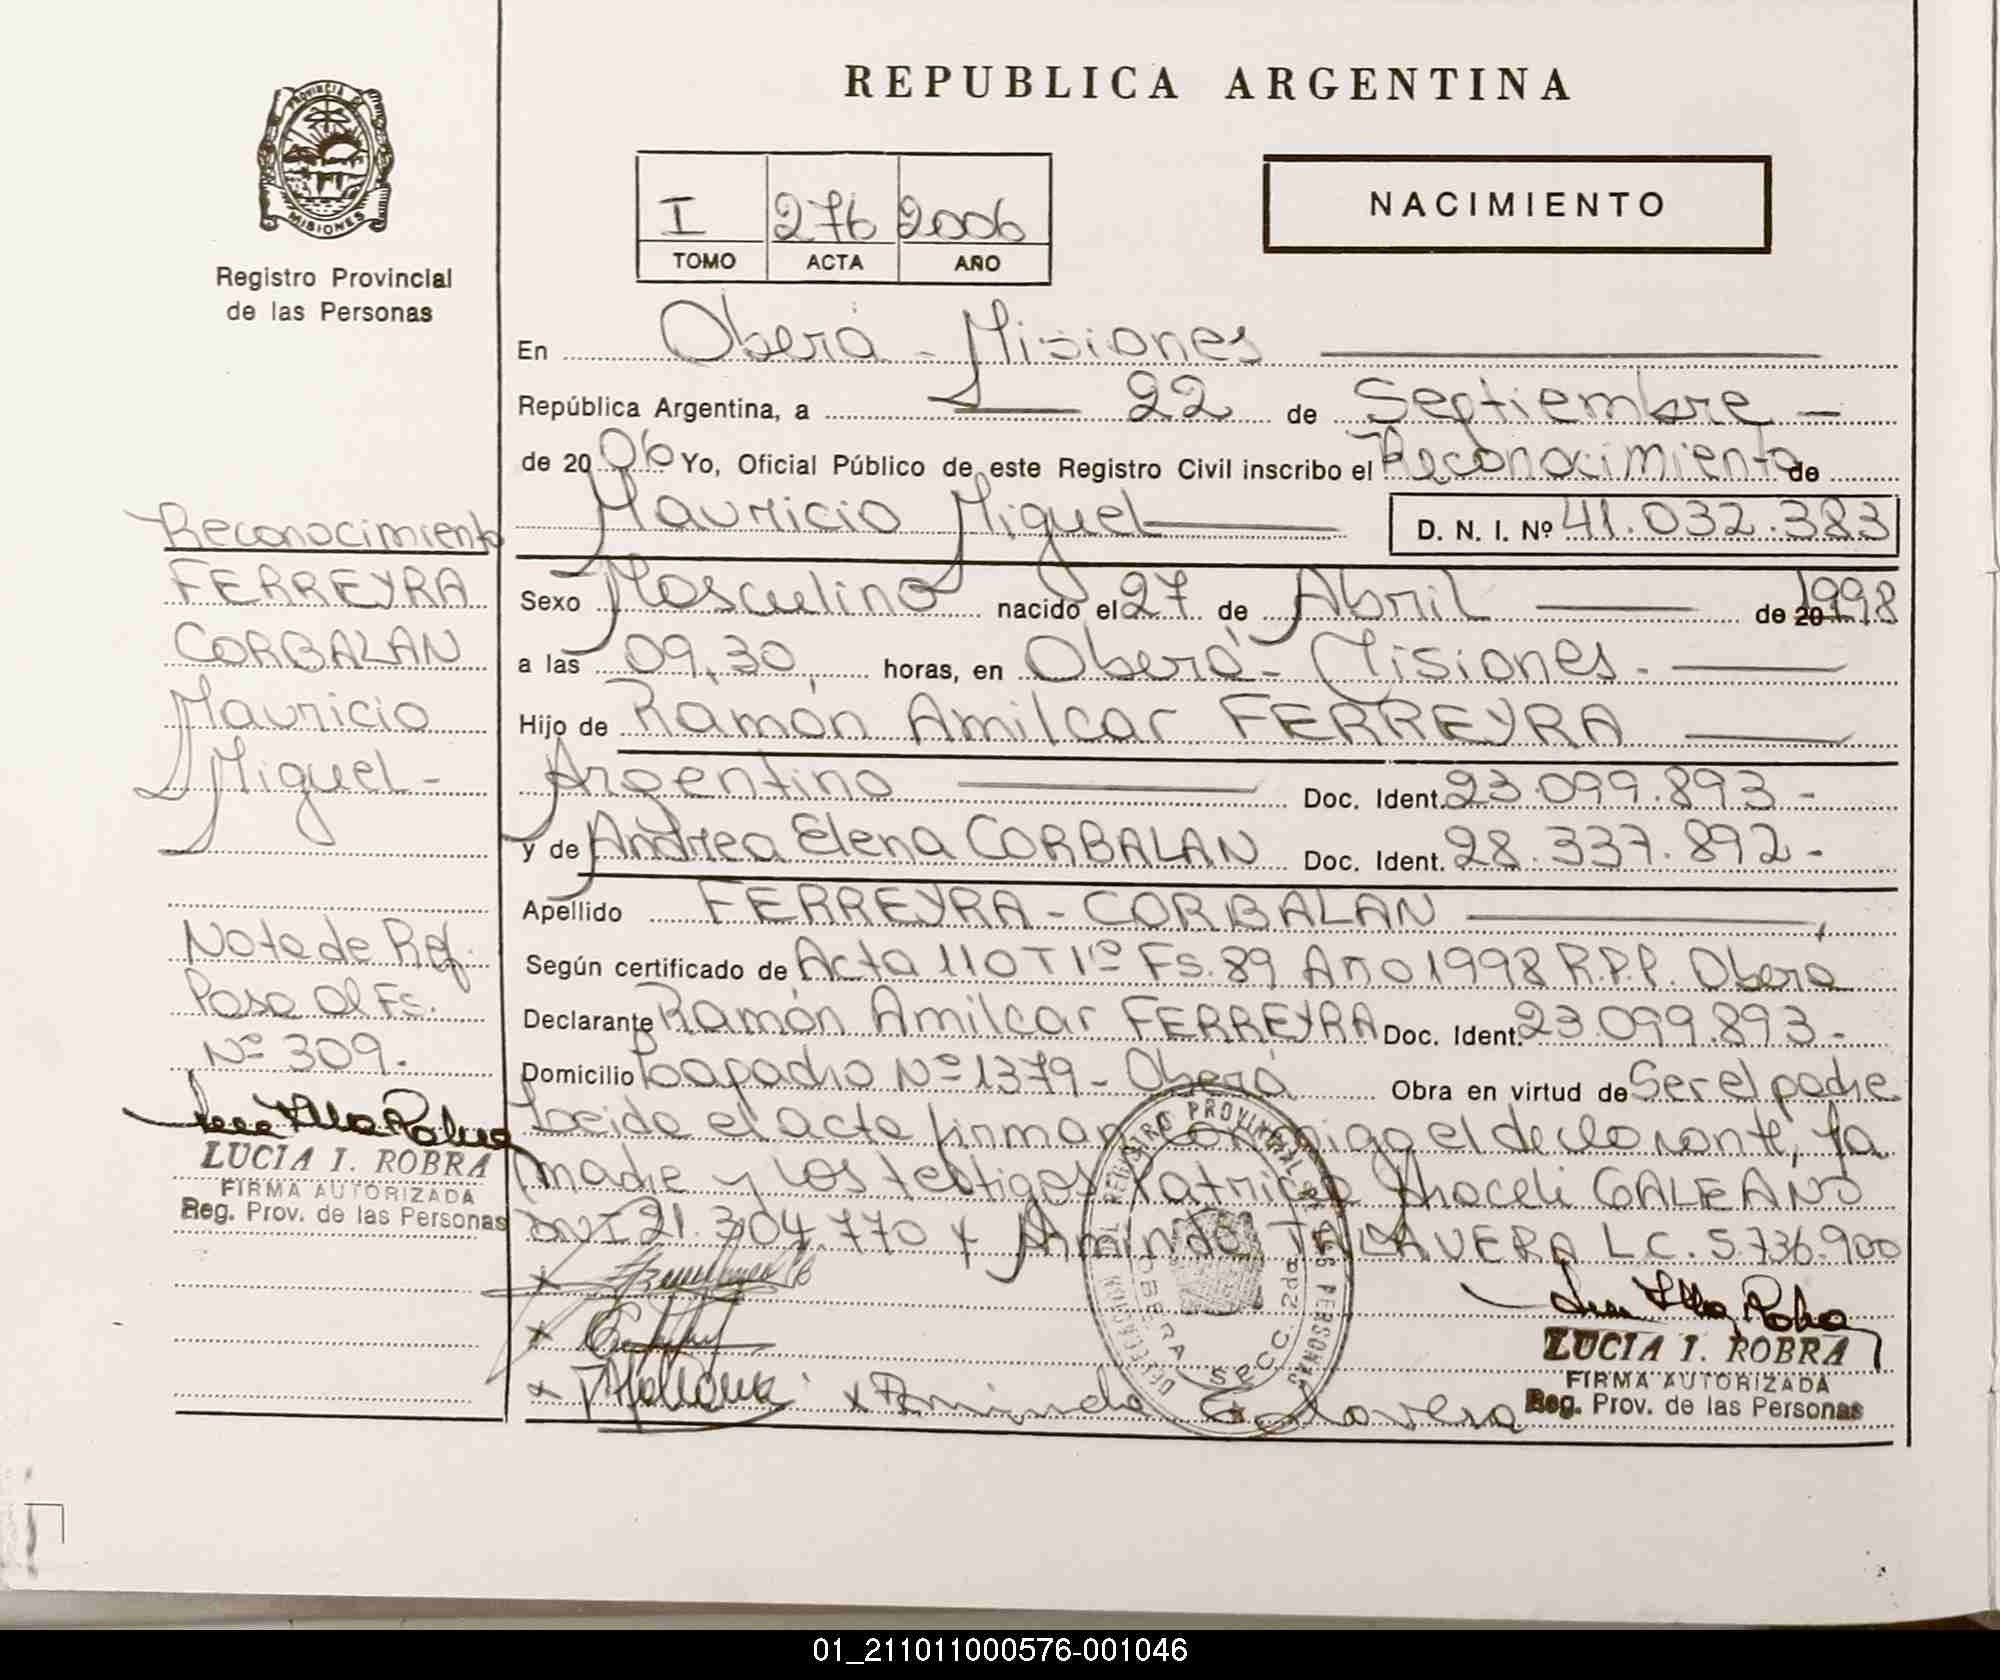 PROVINCIA DE
MISIONES
Registro Provincial
de las Personas
REPUBLICA ARGENTINA
I 276 2006
TOMO ACTA AÑO
NACIMIENTO
En Oberá - Misiones
República Argentina, a 22 de Septiembre -
de 2006 Yo, Oficial Público de este Registro Civil inscribo el Reconocimiento de
Mauricio Miguel D. N. I. Nº 41.032.383
Sexo Masculino nacido el 27 de Abril de 20 1998
a las 09,30, horas, en Oberá - Misiones.
Hijo de Ramón Amilcar FERREYRA
Argentino Doc. Ident. 23.099.893 -
y de Andrea Elena CORBALAN Doc. Ident. 28.337.892 -
Apellido FERREYRA - CORBALAN
Según certificado de Acta 110 T 1º Fs. 89 Año 1998 R.P.P. Oberá
Declarante Ramón Amilcar FERREYRA Doc. Ident. 23.099.893 -
Domicilio Nº 1379 - Oberá Obra en virtud de Ser el padre
Leida el acta firman conmigo el declarante, la
madre y los testigos Patricia GALEANO
DNI 21.304.770 y Arminda TALAVERA L.C. 5.736.900
x
x
x x Arminda Talavera
LUCIA I. ROBRA
FIRMA AUTORIZADA
Reg. Prov. de las Personas
REGISTRO PROVINCIAL DE LAS PERSONAS
DELEGACION
OBERA SECC. 2da
Reconocimiento
FERREYRA
CORBALAN
Mauricio
Miguel -
Nota de Ref.
Pasa al Fs.
Nº 309.
LUCIA I. ROBRA
FIRMA AUTORIZADA
Reg. Prov. de las Personas
01_211011000576-001046